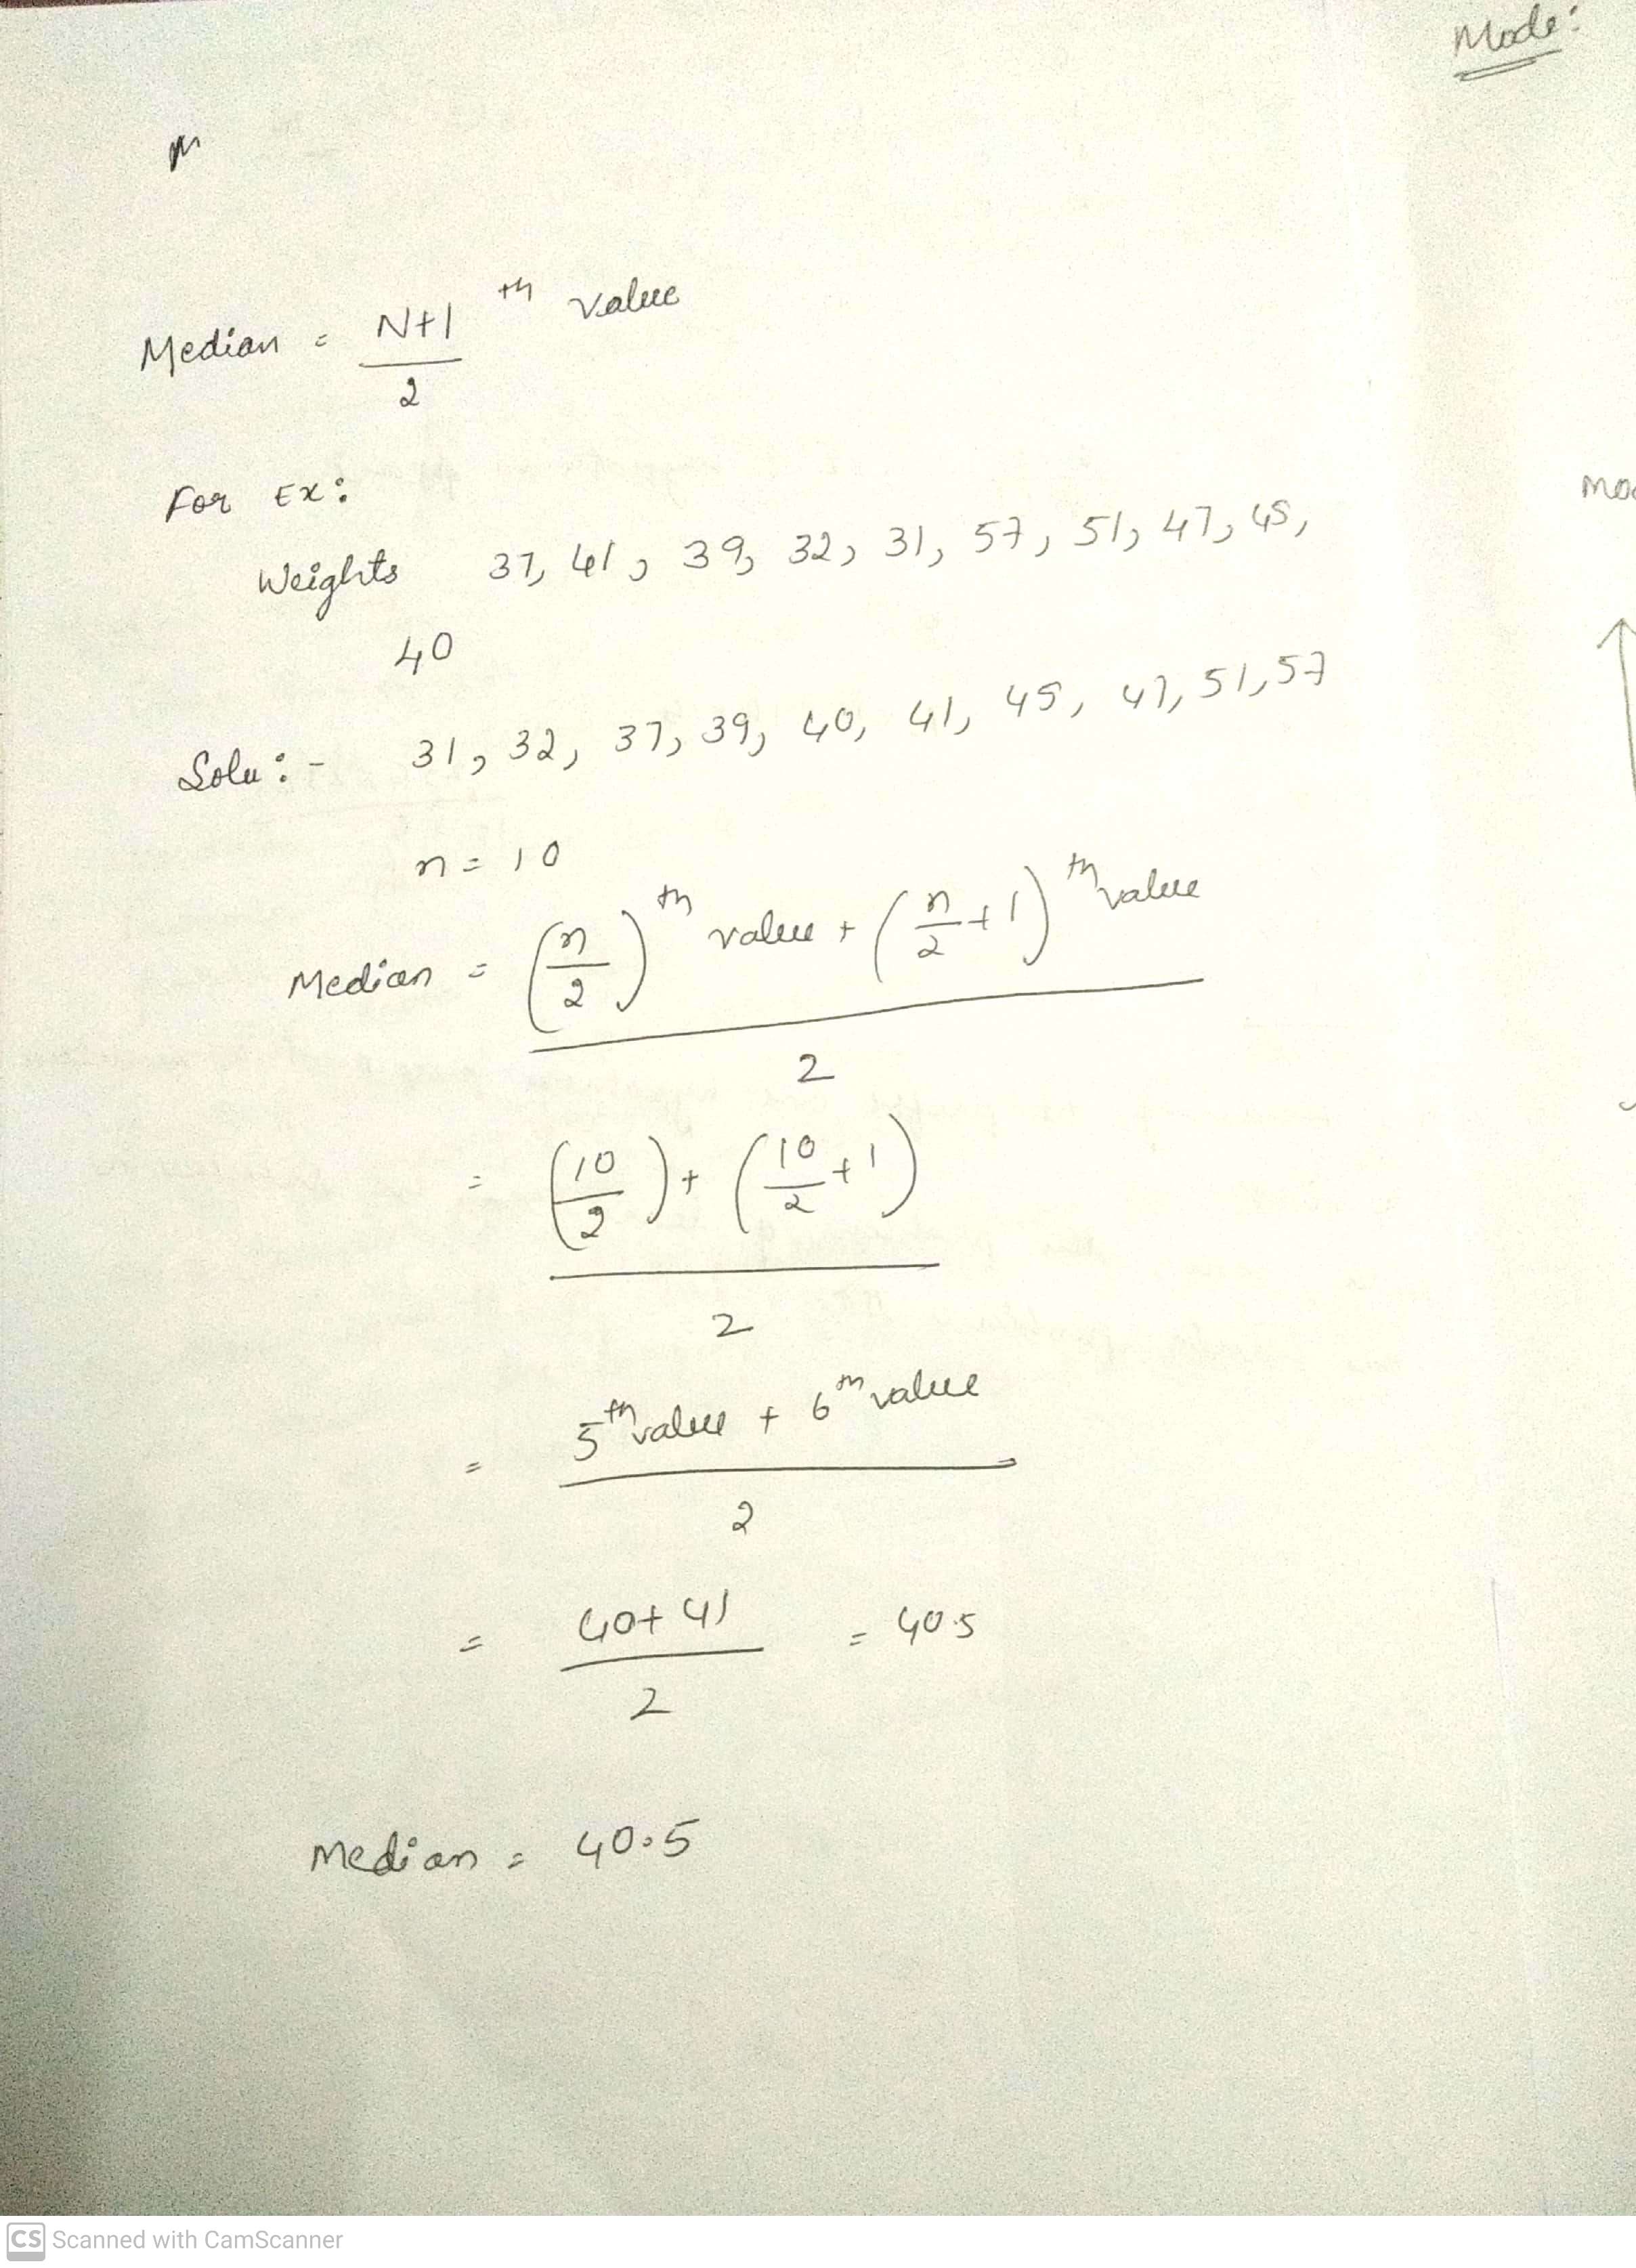 Mode:
Median = N+1 th value
2
For Ex:
Weights 37, 41, 39, 32, 31, 57, 51, 47, 45,
40
Solu:- 31, 32, 37, 39, 40, 41, 45, 47, 51, 57
n = 10
Median = (n/2)th value + (n/2 + 1)th value
2
= (10/2) + (10/2 + 1)
2
= 5th value + 6th value
2
= 40 + 41 = 40.5
2
Median = 40.5
CS Scanned with CamScanner